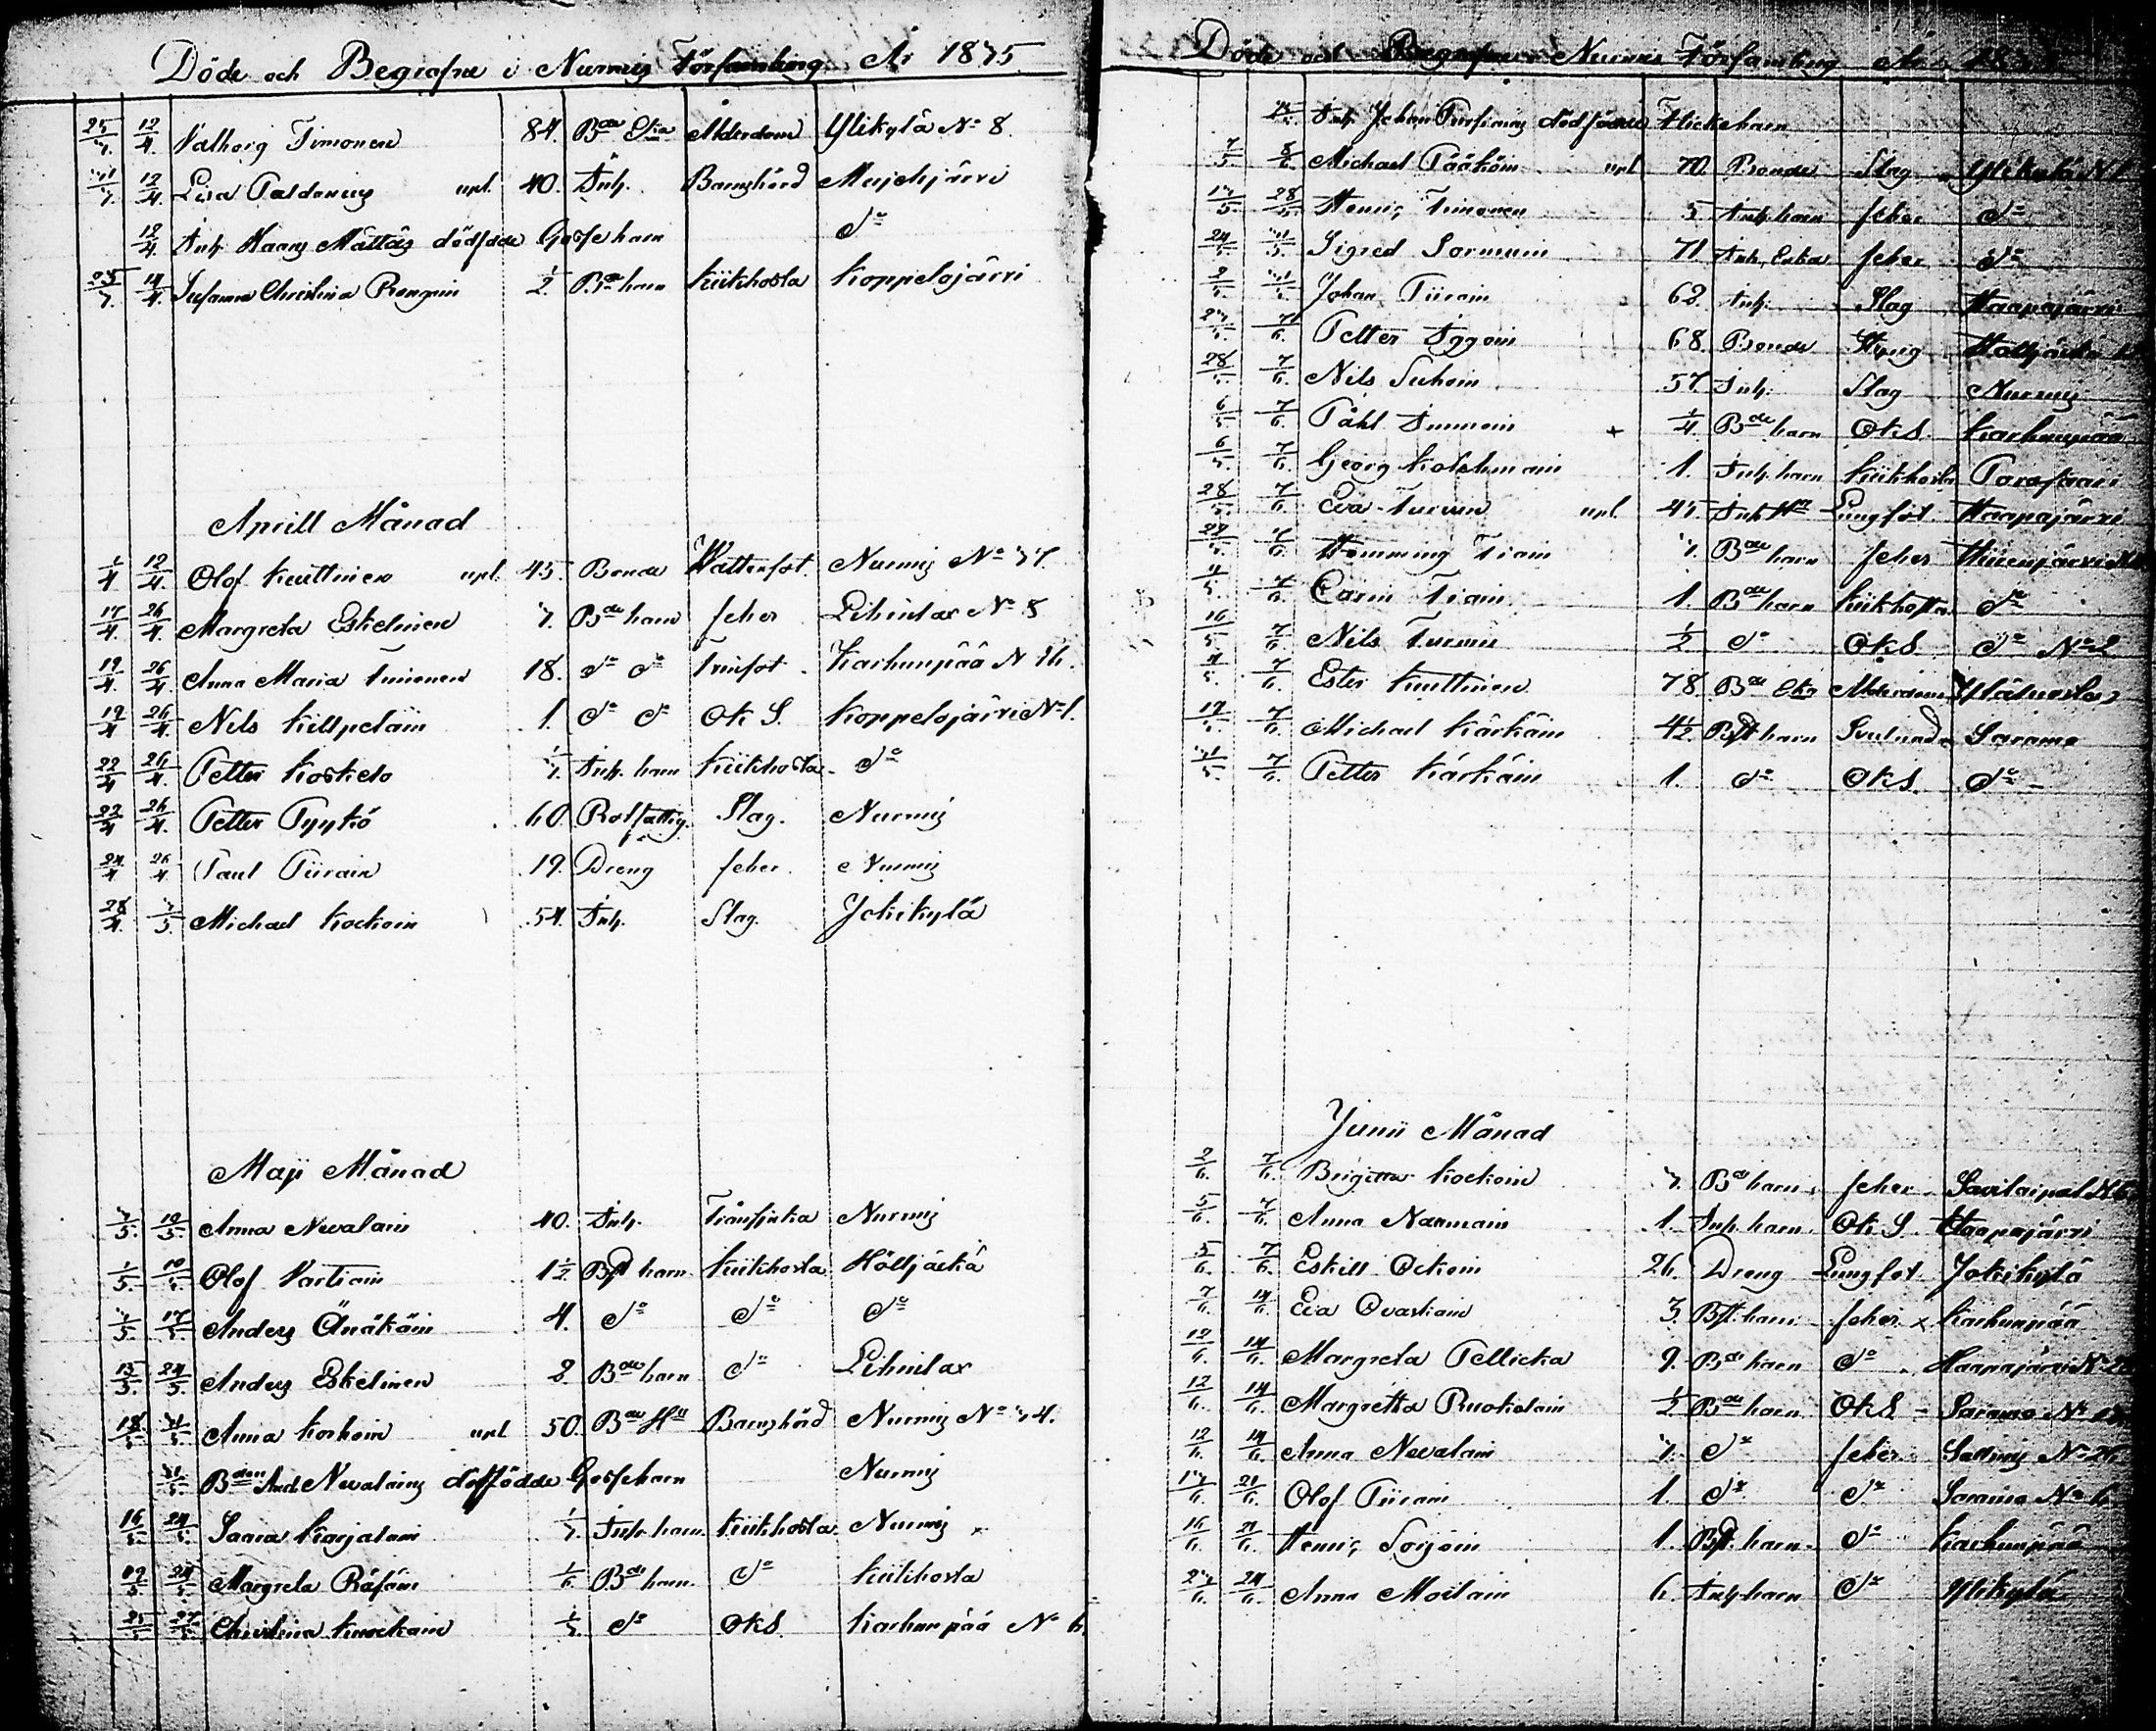 Döde och Begrafne i Nurmis Församling År 1835
25/3 12/4 Valborg Timonen 84. Bde Eka Ålderdom Ylikylä No 8.
31/3 12/4 Lisa Taldonius upl. 40. Inh. Barnsbörd Mujehjärvi
12/4 Inh. Hanns Mattas dödfödde Gosse barn do
25/3 19/4 Susanna Christina Rongain 1/2. Bde barn kiikhosta koppelojärvi
Aprill Månad
1/4 12/4 Olof kuittinen upl. 45. Bonde Wattensot. Nurmis No 37.
17/4 26/4 Margreta Eskelinen 3. Bde barn feber Lihinlax No 8
19/4 26/4 Anna Maria Timonen 18. do do Trinsot. Karhunpää N 26.
19/4 26/4 Nils kilpeläin 1. do do Ok S. koppelojärvi No 1.
22/4 26/4 Petter koskelo 1/3 Inh. barn kiikhosta do
22/4 26/4 Petter Pyykö 60. Rotfattig. Slag. Nurmis
24/4 26/4 Paul Piirain 19. Dreng feber. Nurmis
28/4 3/5 Michael kockoin 54. Inh. Slag. Jokikylä
Maji Månad
3/5 10/5 Anna Nevalain 40. Inh. Nurmis
1/5 10/5 Olof Vartiain 1 1/2 Bst barn kiikhosta Höljäckä
3/5 17/5 Anders Änäkäin 4. do do do
13/5 24/5 Anders Eskelinen 2. Bde barn do Lihinlax
18/5 31/5 Anna korhoin upl 50. Bde Hu Barnsbörd Nurmis No 34.
31/5 Bden And. Nevalains dödfödde Gosse barn Nurmis
16/5 24/5 Saara karjalain 1/3 Inh. barn. kiikhosta Nurmis
19/5 24/5 Margreta Räsäin 1/6 Bde barn. do
25/5 27/5 Christina 1/3 do OkS karhunpää No 6.
Döde och Begrafne i Nurmis Församling År 1835
Inh. Johan dödfödde Flickebarn
7/5 8/6 Michael Pääköin upl 70. Bonde Slag Ylikylä N 1
17/5 28/5 Henric Timonen 5 Inh. barn feber do
24/5 31/5 Sigred Sormuin 71 Inh. Enka feber do
2/5 31/5 Johan Piirain 62. Inh. Slag Haapajärvi
27/5 7/6 Petter 68. Bonde Höljäckä
28/5 7/6 Nils Suhoin 57. Inh. Slag Nurmis
6/5 7/6 Påhl Immoin 1/4. Bde barn OkS. karhunpää
6/5 7/6 Georg kolehmain 1. Inh. barn kiikhosta Porosaari
28/5 7/6 Eva Turuin upl. 45. Inh Hu Lungsot. Haapajärvi
29/5 7/6 Hemming Tiain 3. Bde barn feber
4/5 7/6 Carin Tiain 1. Bde barn kiikhosta do
16/5 7/6 Nils Turuin 1/2 do OkS. do No 2
4/5 7/6 Ester kuittinen 78. Bde Eka Ålderdom
17/5 7/6 Michael kärkäin 4 1/2. Bst barn Saramo
31/5 7/6 Petter kärkäin 1. do OkS. do
Junii Månad
2/6 7/6 Brigitta kockoin 3. Bde barn feber
5/6 7/6 Anna Nanmain 1. Inh. barn Ok S. Haapajärvi
5/6 7/6 Eskill Ockoin 26. Dreng Lungsot. Jokikylä
7/6 14/6 Eva Ovaskain 3. Bst. barn feber karhunpää
12/6 14/6 Margreta Pellicka 9. Bde barn do Haapajärvi
12/6 14/6 Margretha Ruokolain 1/2 Bde barn OkS Saramo
12/6 14/6 Anna Nevalain do feber No 26
13/6 21/6 Olof Piirain 1. do do Saramo No 6
16/6 21/6 Henric Sorjoin 1. Bst. barn do karhunpää
23/6 24/6 Anna Moilain 6. Inh barn do Ylikylä